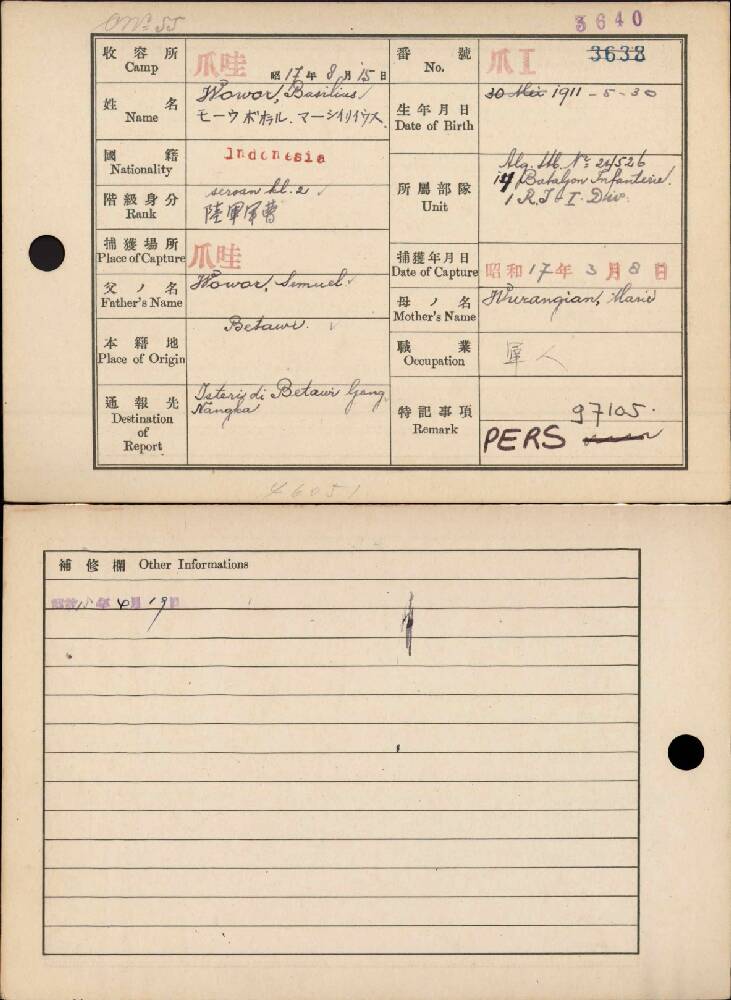 3640
收容所 Camp 爪哇 昭17年8月15日
番號 No. 爪I 3638
姓名 Name Wowor, Basilius
生年月日 Date of Birth 30 Mei 1911-5-30
國籍 Nationality Indonesia
階級身分 Rank seroan kl. 2
陸軍軍曹
所屬部隊 Unit Alg. Stb. No 24526
14 Bataljon Infanterie.
1 R. I. 1 Div.
捕獲場所 Place of Capture 爪哇
捕獲年月日 Date of Capture 昭和17年3月8日
父ノ名 Father's Name Wowor, Simuel
母ノ名 Mother's Name Wurangian, Marie
本籍地 Place of Origin Betawi.
職業 Occupation 軍人
通報先 Destination of Report Isteri di Betawi Gang
Nangka
特記事項 Remark 97105.
PERS
46051
補修欄 Other Informations
昭和18年4月19日